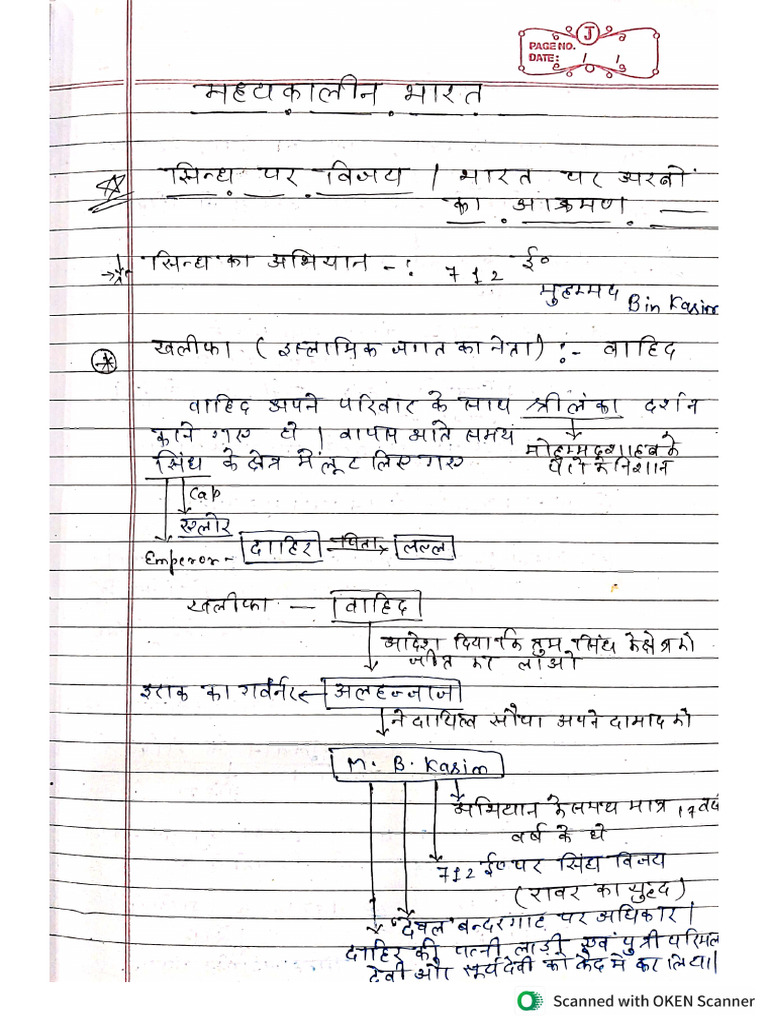 J
PAGE NO.
DATE: / /
महयकालीन भारत
सिन्ध पर विजय / भारत पर अरबों
का आक्रमण
सिन्ध का अभियान -: 712 ई०
मुहम्मद Bin Kasim
खलीफा (इस्लामिक जगत का नेता) :- वाहिद
वाहिद अपने परिवार के साथ श्रीलंका दर्शन
करने गए थे । वापस आते समय
मोहम्मद साहब के
सिंध के क्षेत्र में लूट लिए गए
पैरो के निशान
Cap
Emperor - दाहिर पिता लल्ल
खलीफा - वाहिद
आदेश दिया कि तुम सिंध के क्षेत्र को
जीत कर लाओ
इराक का गवर्नर ← अलहज्जाज
ने दायित्व सौंपा अपने दामाद को
M. B. Kasim
अभियान के समय मात्र 17
वर्ष के थे
712 ई० पर सिंध विजय
(रावर का युद्द)
"देवल" बन्दरगाह पर अधिकार ।
दाहिर की पत्नी लाडी एवं पुत्री परिमल
देवी और सूर्यदेवी को कैद में कर लिया।
Scanned with OKEN Scanner